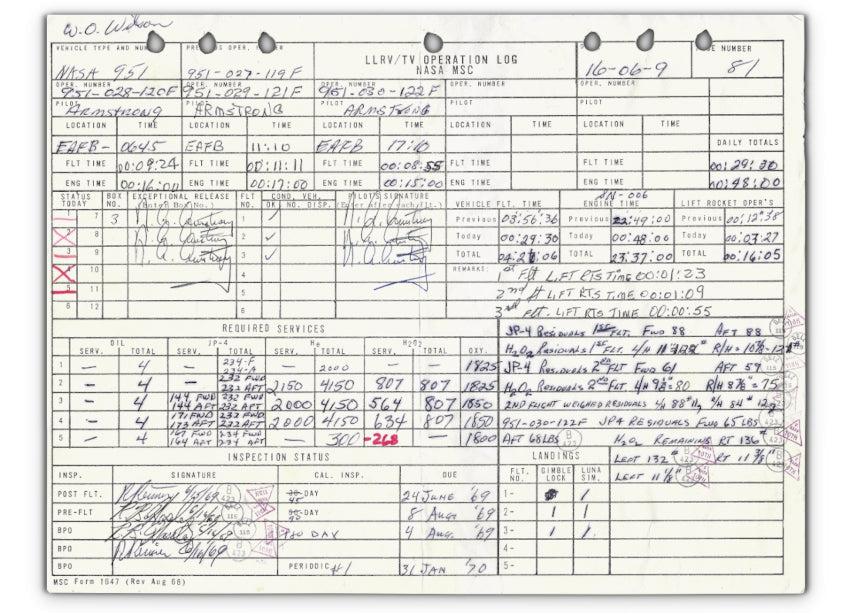 W.O. Wilson
VEHICLE TYPE AND NUM
NASA 951
951-027-119F
LLRV/TV OPERATION LOG
NASA MSC
16-06-9
NUMBER
81
OPER. NUMBER
951-028-120F
951-029-121F
951-030-122F
OPER. NUMBER
OPER. NUMBER
PILOT ARMSTRONG
PILOT ARMSTRONG
PILOT ARMSTRONG
PILOT
PILOT
LOCATION TIME LOCATION TIME LOCATION TIME LOCATION TIME LOCATION TIME
EAFB- 0645 EAFB 11:10 EAFB 17:10 DAILY TOTALS
FLT TIME 00:09:24 FLT TIME 00:11:11 FLT TIME 00:08:55 FLT TIME FLT TIME 00:29:30
ENG TIME 00:16:00 ENG TIME 00:17:00 ENG TIME 00:15:00 ENG TIME ENG TIME 00:48:00
STATUS TODAY BOX NO. EXCEPTIONAL RELEASE FLT NO. COND. VEH. OK NO. DISP. PILOT'S SIGNATURE
VEHICLE FLT. TIME SN-006 ENGINE TIME LIFT ROCKET OPER'S
Previous 03:56:36 Previous 22:49:00 Previous 00:12:38
Today 00:29:30 Today 00:48:00 Today 00:03:27
TOTAL 04:26:06 TOTAL 23:37:00 TOTAL 00:16:05
REMARKS: 1st Flt LIFT RTS TIME 00:01:23
2nd flt LIFT RTS TIME 00:01:09
3rd flt. LIFT RTS TIME 00:00:55
REQUIRED SERVICES
OIL JP-4 He H2O2
SERV. TOTAL SERV. TOTAL SERV. TOTAL SERV. TOTAL OXY.
1 - 4 234-F 234-A - 2000 1825
2 - 4 - 232 FWD 232 AFT 2150 4150 807 807 1825
3 - 4 144 FWD 144 AFT 232 FWD 232 AFT 2000 4150 564 807 1850
4 - 4 171 FWD 173 AFT 232 FWD 232 AFT 2000 4150 634 807 1850
5 - 4 167 FWD 164 AFT 234 FWD 234 AFT - 300 -268 1800
JP-4 RESIDUALS 1ST FLT. FWD 88 AFT 88
H2O2 RESIDUALS 1ST FLT.
JP-4 RESIDUALS 2ND FLT FWD 61 AFT 59
H2O2 RESIDUALS 2ND FLT. L/H 9⅜"=80 R/H 8⅞"=75
2ND FLIGHT WEIGHED RESIDUALS
951-030-122F JP4 RESIDUALS FWD 65 LBS
AFT 68 LBS H2O2 REMAINING RT 136#
LEFT 132# RT 11⅜"
LEFT 11⅛"
INSPECTION STATUS
INSP. SIGNATURE CAL. INSP. DUE
LANDINGS
FLT. NO. GIMBLE LOCK LUNA SIM.
POST FLT. -DAY 24 JUNE '69 1-
PRE-FLT -DAY 8 Aug. '69 2- 1 1
BPO 180 DAY 4 Aug. '69 3- 1 1
BPO 4-
BPO PERIODIC #1 31 JAN '70 5-
MSC Form 1647 (Rev Aug 66)